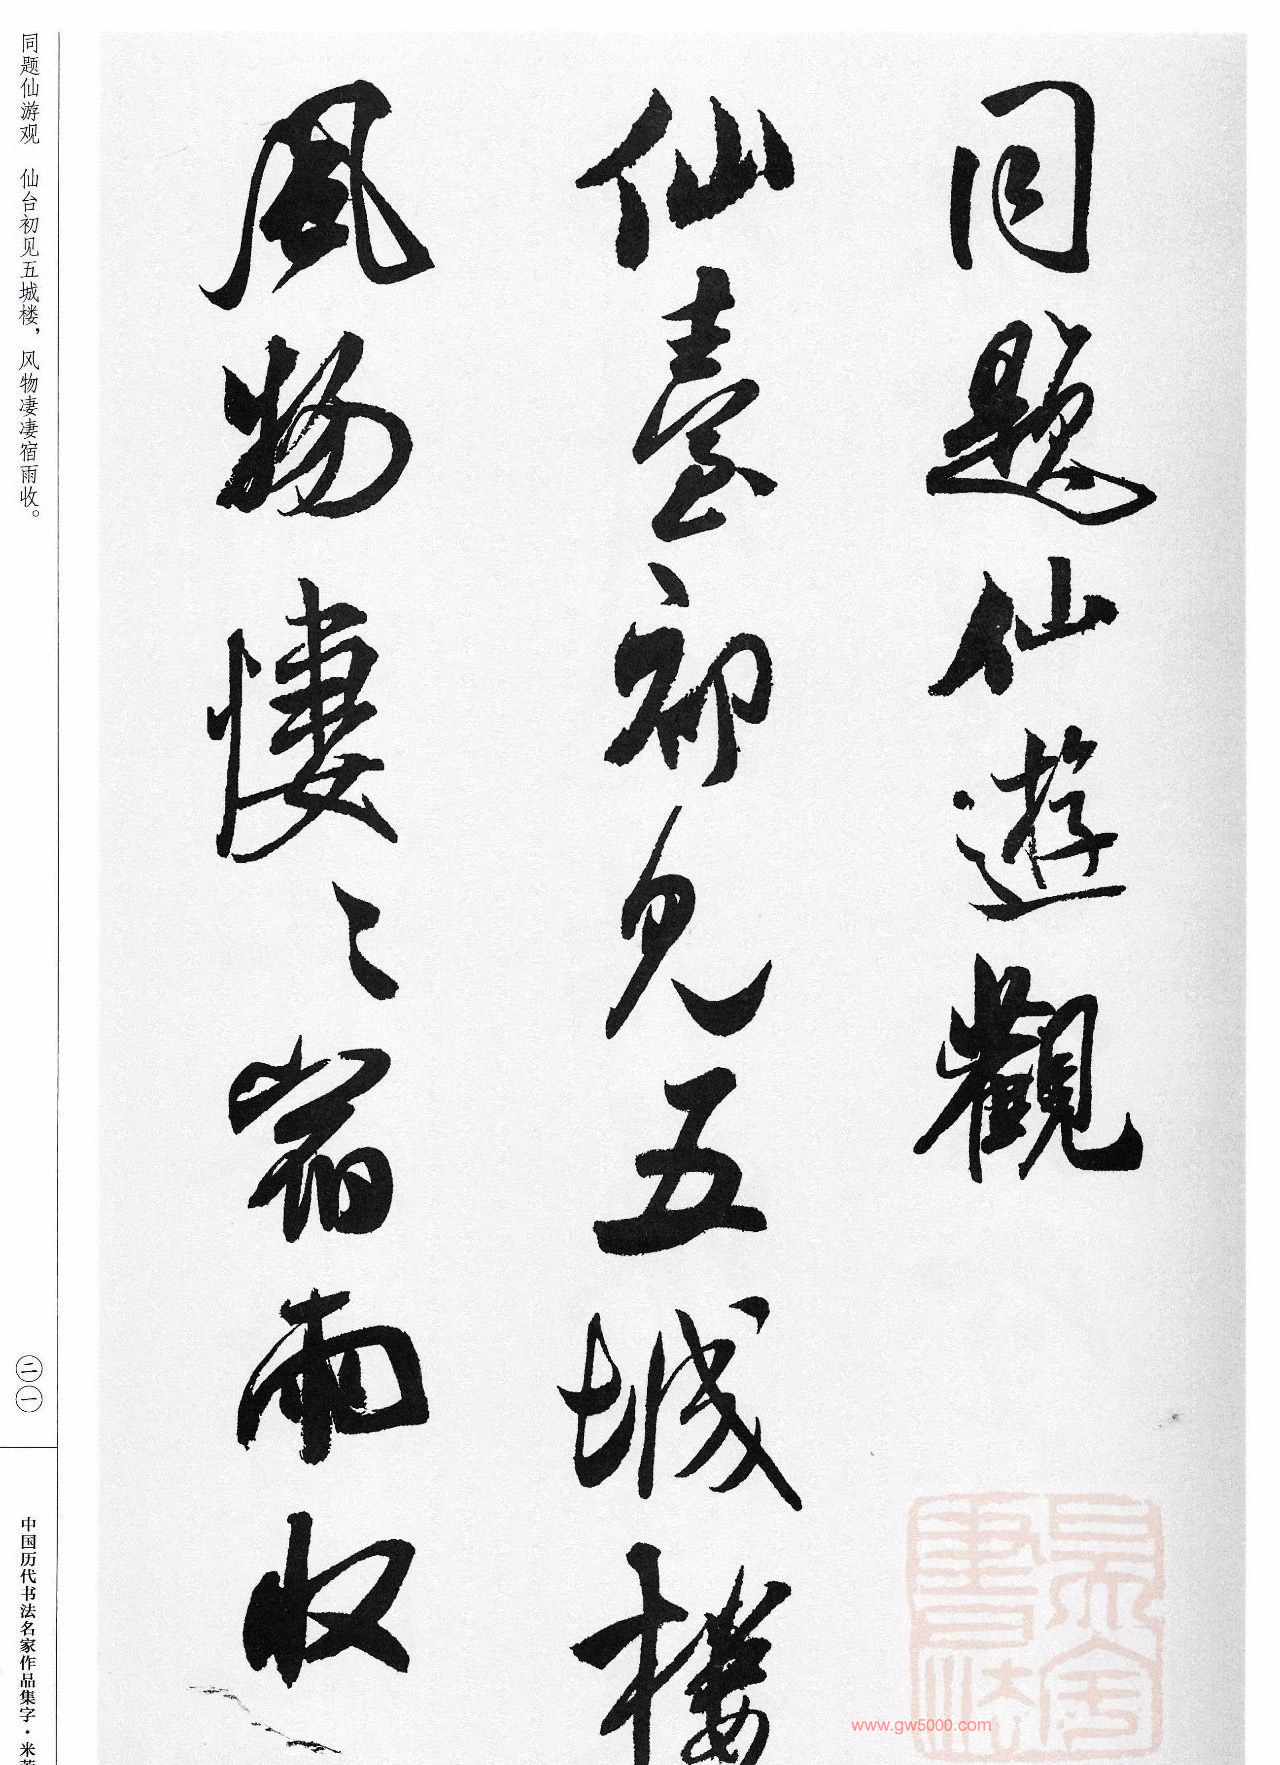 同題仙遊觀
仙臺初見五城樓
風物悽々宿雨收
同题仙游观　仙台初见五城楼，风物凄凄宿雨收。
二一
中国历代书法名家作品集字·米芾
www.gw5000.com